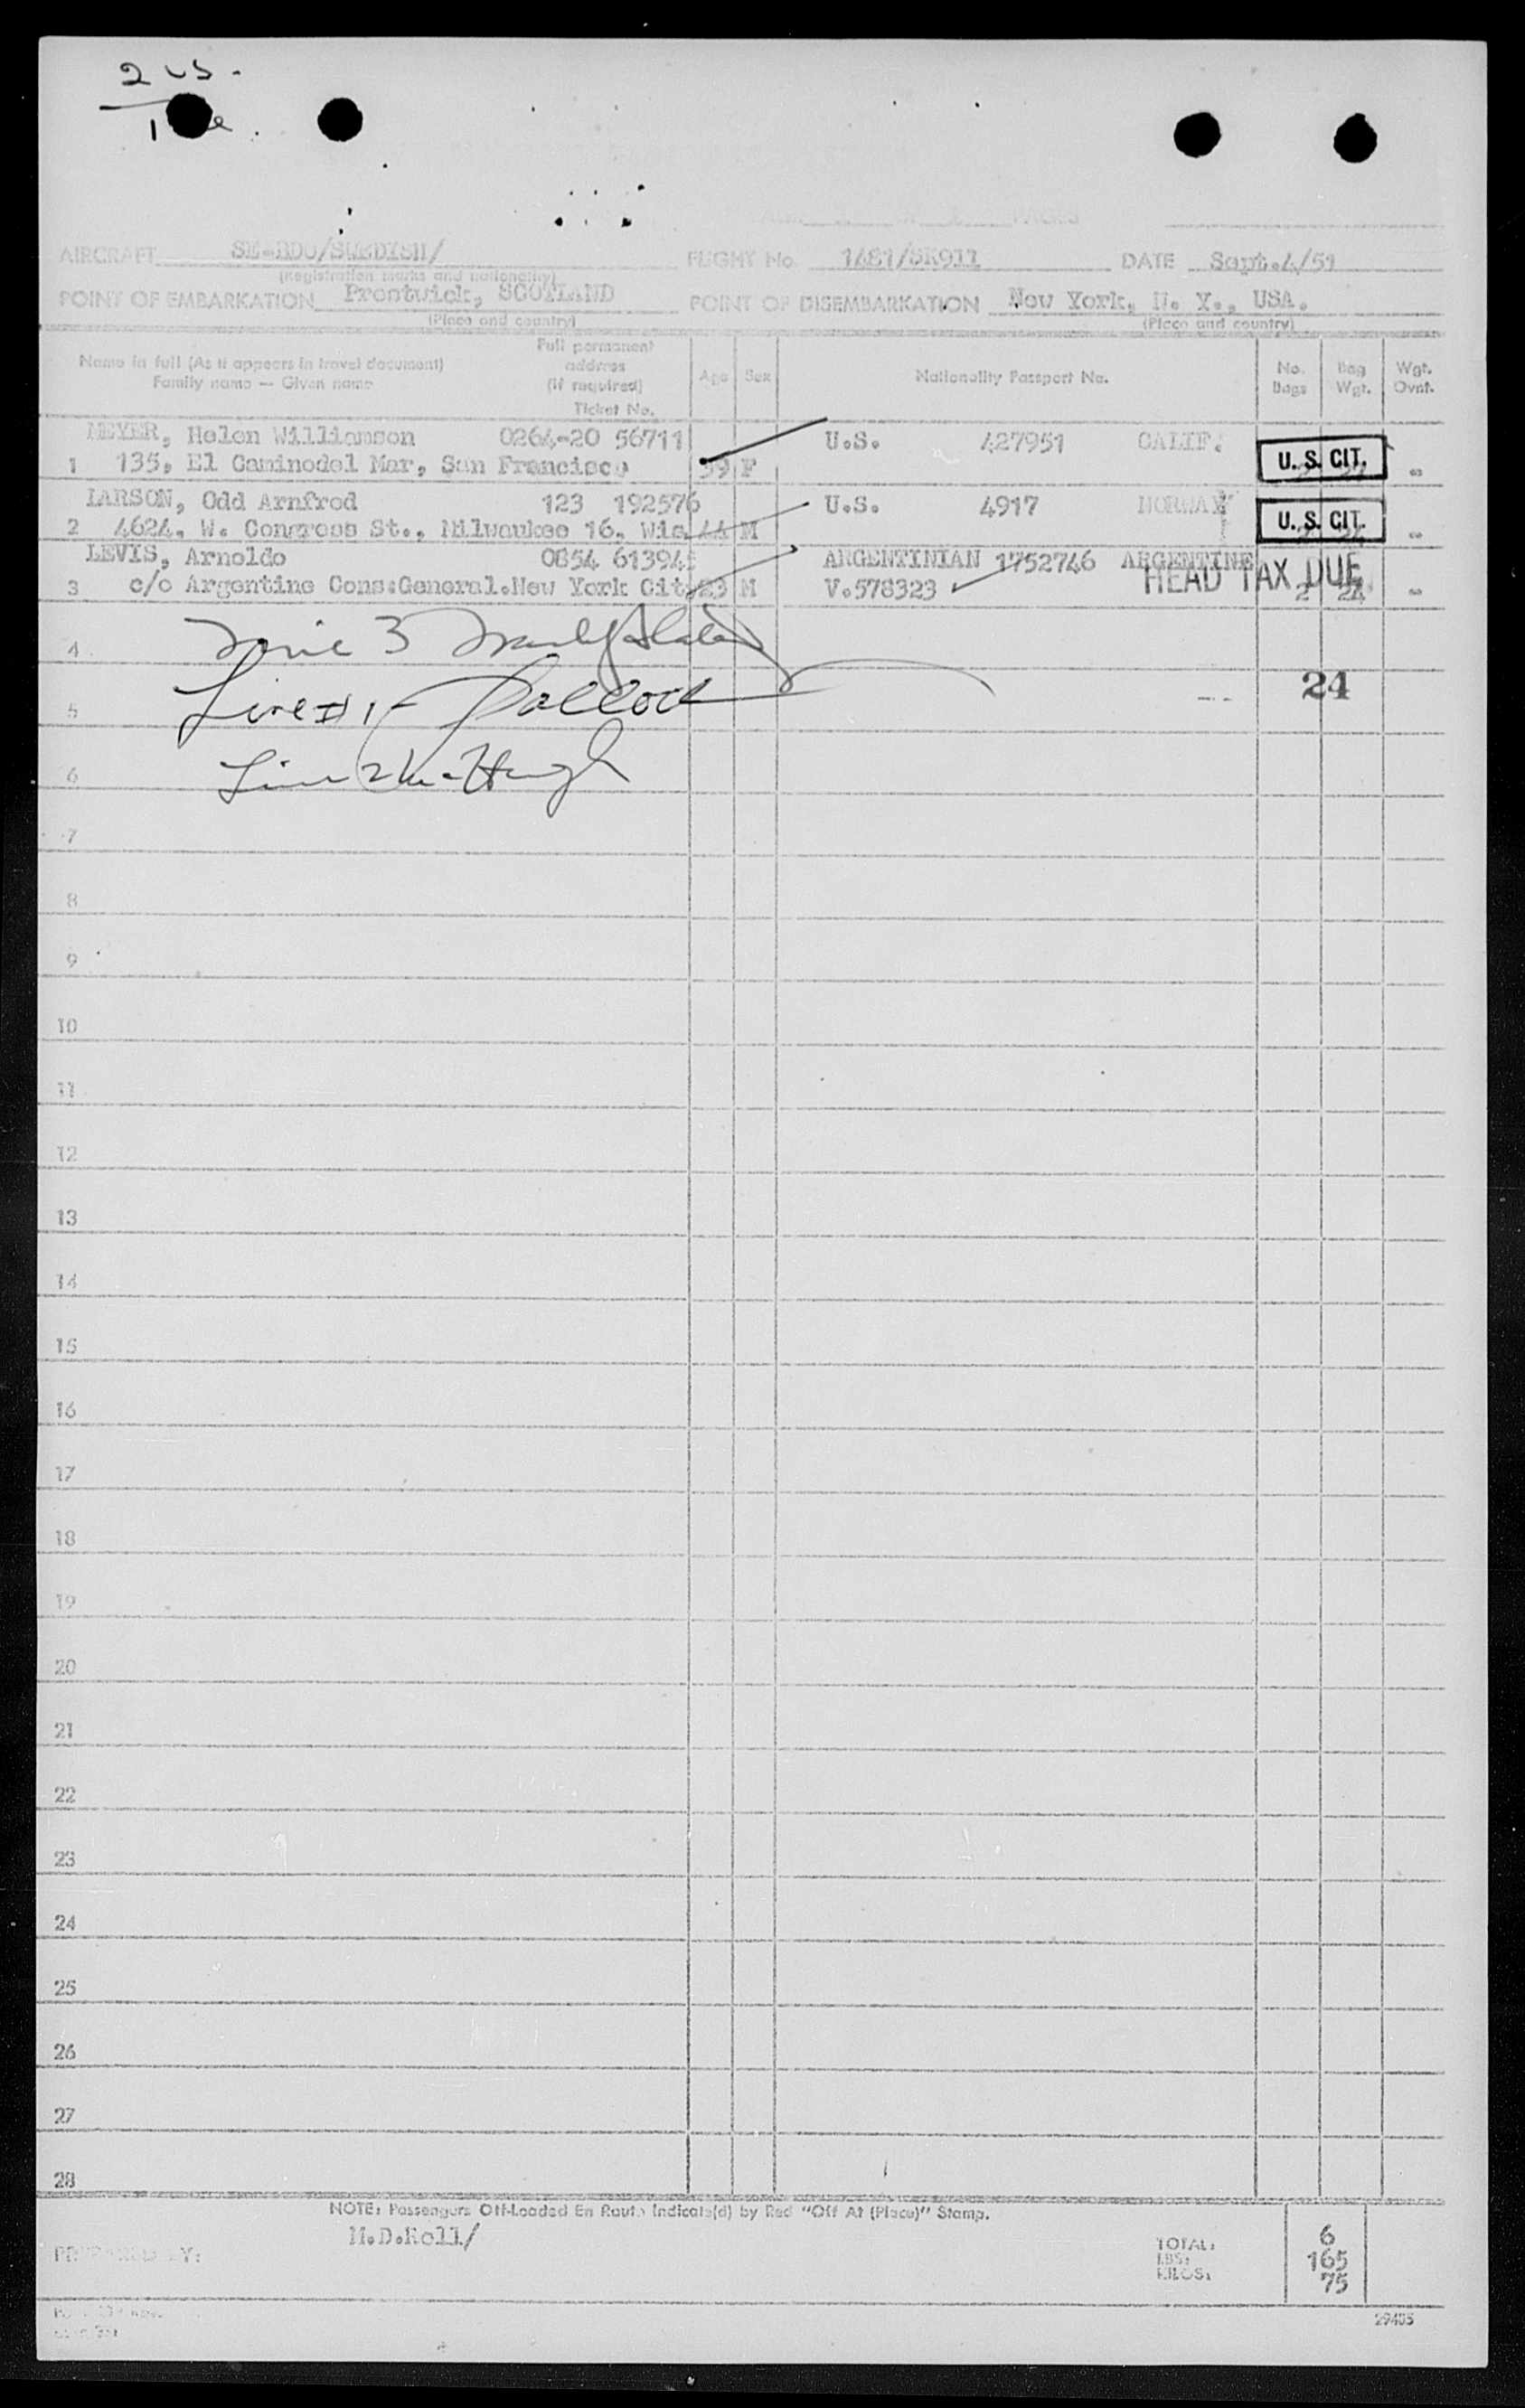 2 us.
1
PAGES
AIRCRAFT SE-BDO/SWEDISH/ FLIGHT No. 1481/SK911 DATE Sept.4/51
(Registration marks and nationality)
POINT OF EMBARKATION Prestwick, SCOTLAND POINT OF DISEMBARKATION New York, N. Y., USA.
(Place and country) (Place and country)
Name in full (As it appears in travel document) Family name — Given name Full permanent address (if required) Ticket No. Age Sex Nationality Passport No. No. Bags Bag Wgt. Wgt. Ovnt.
MEYER, Helen Williamson 0264-20 56711 U.S. 427951 CALIF.
1 135, El Caminodel Mar, San Francisco 39 F U.S. CIT. -
LARSON, Odd Arnfred 123 192576 U.S. 4917 NORWAY
2 4624, W. Congress St., Milwaukee 16, Wis. 44 M U.S. CIT. -
LEVIS, Arnoldo 0854 613945 ARGENTINIAN 1752746 ARGENTINE
3 c/o Argentine Cons:General.New York Cit 23 M V.578323 HEAD TAX DUE 2 24 -
4 Line 3
5 Line #1 - Pollock 24
6 Line 2
7
8
9
10
11
12
13
14
15
16
17
18
19
20
21
22
23
24
25
26
27
28
NOTE: Passengers Off-Loaded En Route Indicate(d) by Red "Off At (Place)" Stamp.
PREPARED BY: M.D.Roll/
TOTAL: 6
LBS: 165
KILOS: 75
29405